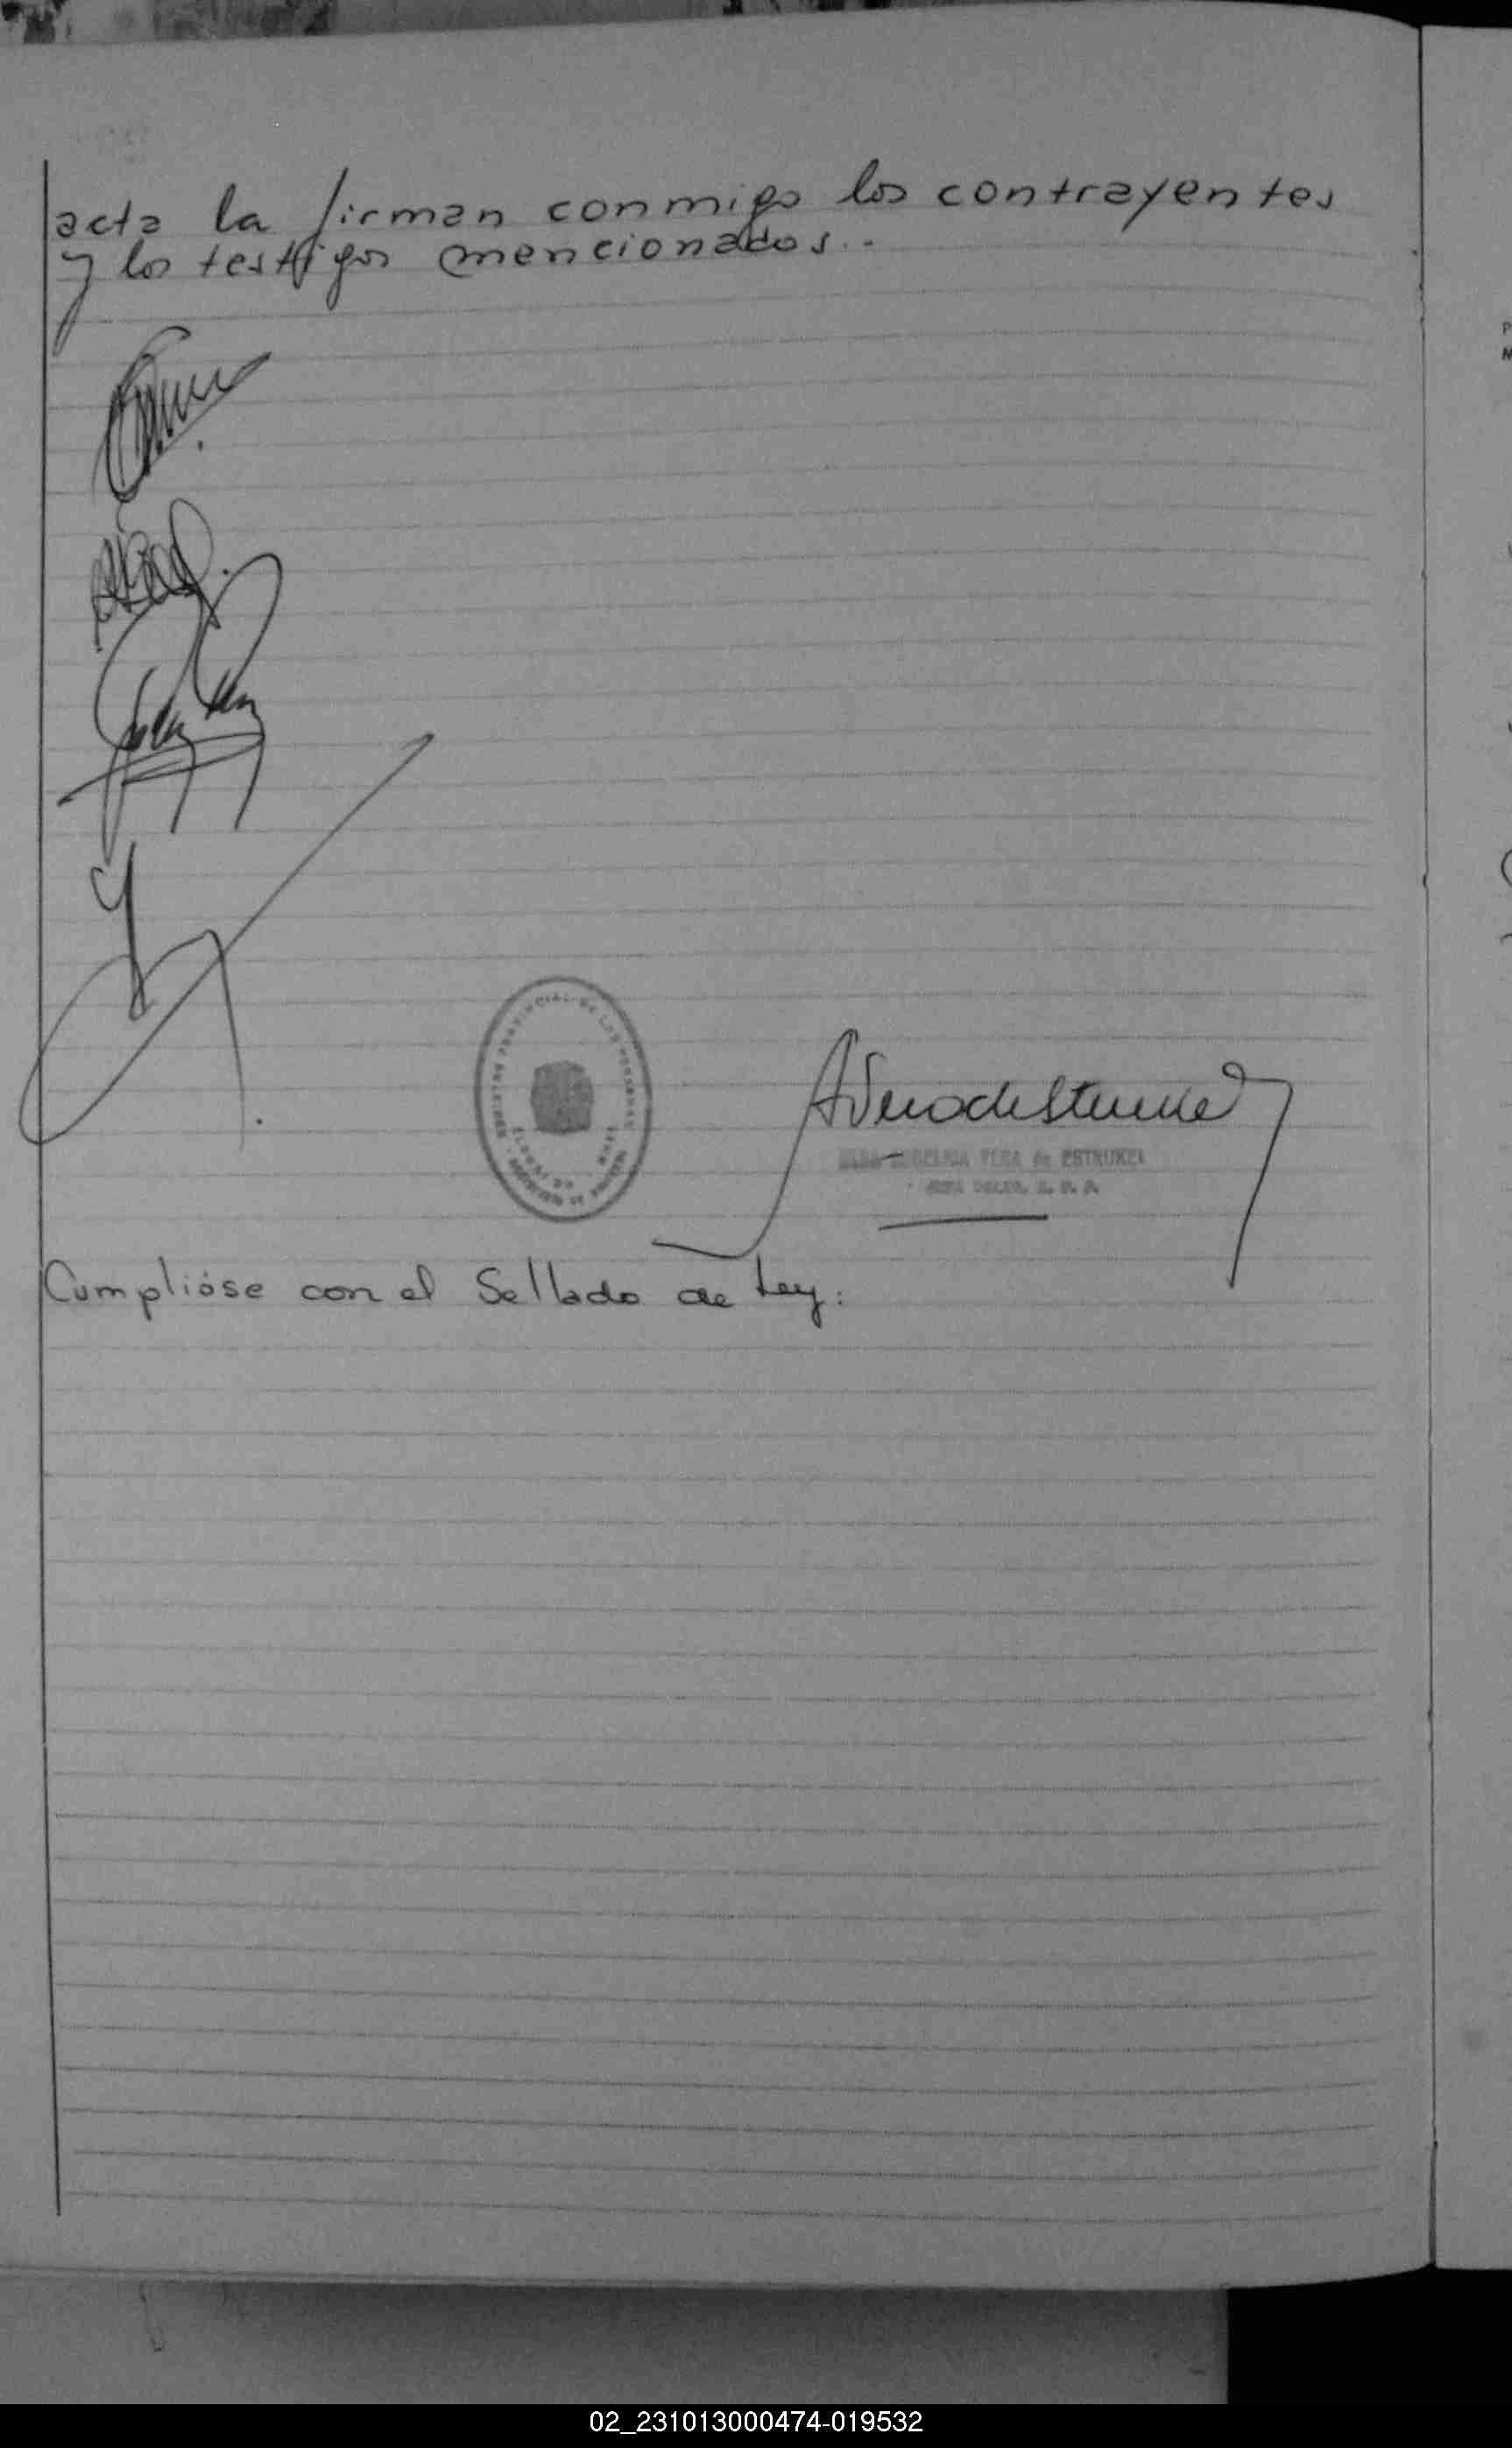 acta la firman conmigo los contrayentes
y los testigos mencionados..-
VERA de ESTRUKEL
Cumplióse con el Sellado de Ley:
02_231013000474-019532